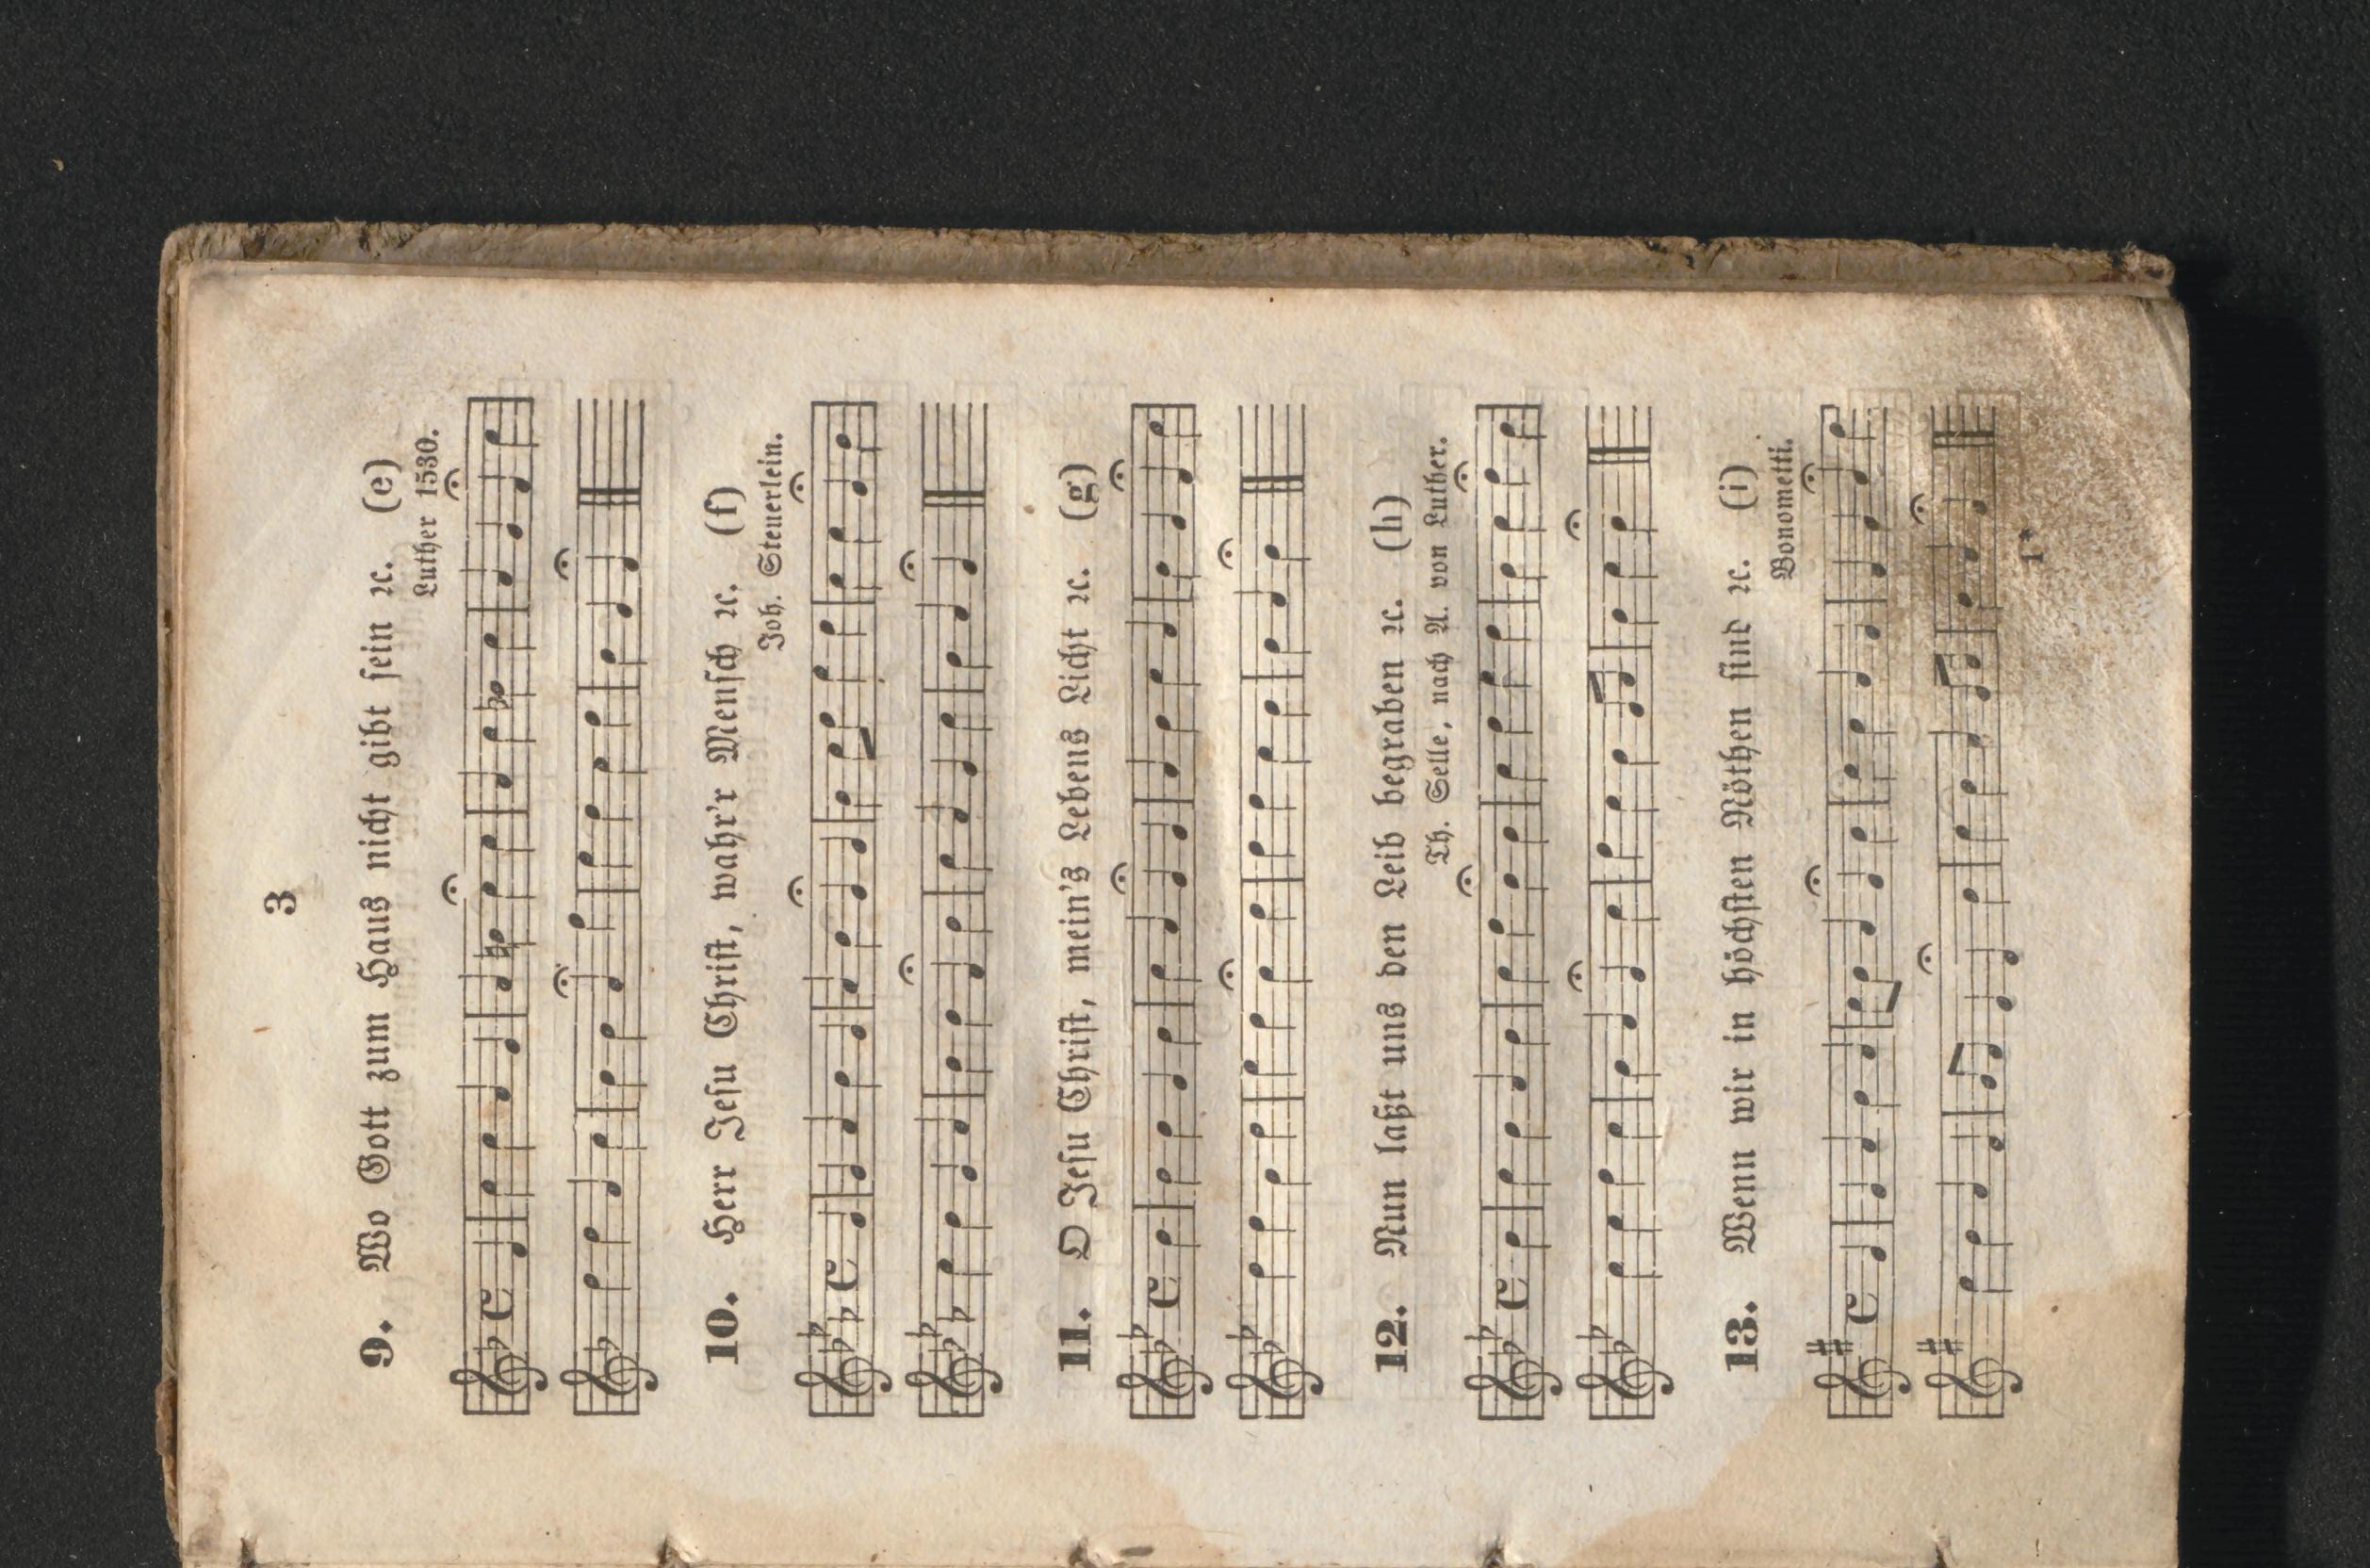 3
9. Wo Gott zum Haus nicht gibt sein ꝛc. (e)
Luther 1530.
10. Herr Jesu Christ, wahr'r Mensch ꝛc. (f)
Joh. Steuerlein.
11. O Jesu Christ, mein's Lebens Licht ꝛc. (g)
12. Nun laßt uns den Leib begraben ꝛc. (h)
Th. Selle, nach A. von Luther.
13. Wenn wir in höchsten Nöthen sind ꝛc. (i)
Bonometti.
1*